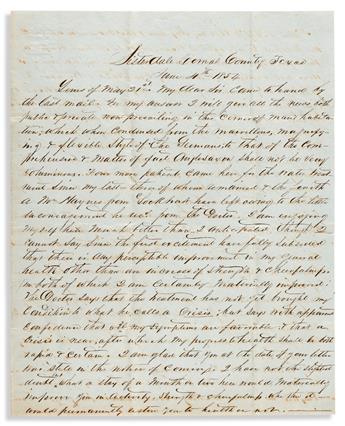 Sisterdale Comal County Texas
June 4th 1854
Yours of May 21st My Dear Sir Came to hand by
the last mail. In my answer I will give all the news both
public & private now prevailing in the Corner of mans habita
tion, which when Condensed from the marvellous, magnify-
ing & flexible Style of the Germans to that of the Com-
prehensive & Matter of fact Anglosaxon Shall not be very
voluminous. Four more patients Came here for the water treat
ment Since my last, three of whom remained & the fourth
a Mr Haynes from have left owing to the little
encouragement he recd. from the Doctor. I am enjoying
myself here Much better than I anticipated though I
cannot Say Since the first excitement has fully Subsided
that there is Any perceptible improvement in my general
health other than an increase of Strength & Cheerfulness
in both of which I am Certainly Materially improved.
The Doctor Says that the treatment has not yet brought my
Condition to what he calls a Crisis; but Says with apparent
Confidence that all my Symptoms are favorable & that a
Crisis is near, after which My progress to health Shall be both
rapid & Certain. I am glad that you at the date of your letter
were Still in the notion of Coming. I have not the slightest
doubt, that a Stay of a Month or two here would Materially
improve you in Activity, Strength & Cheerfulness whether it
would permanently restore you to health or not.